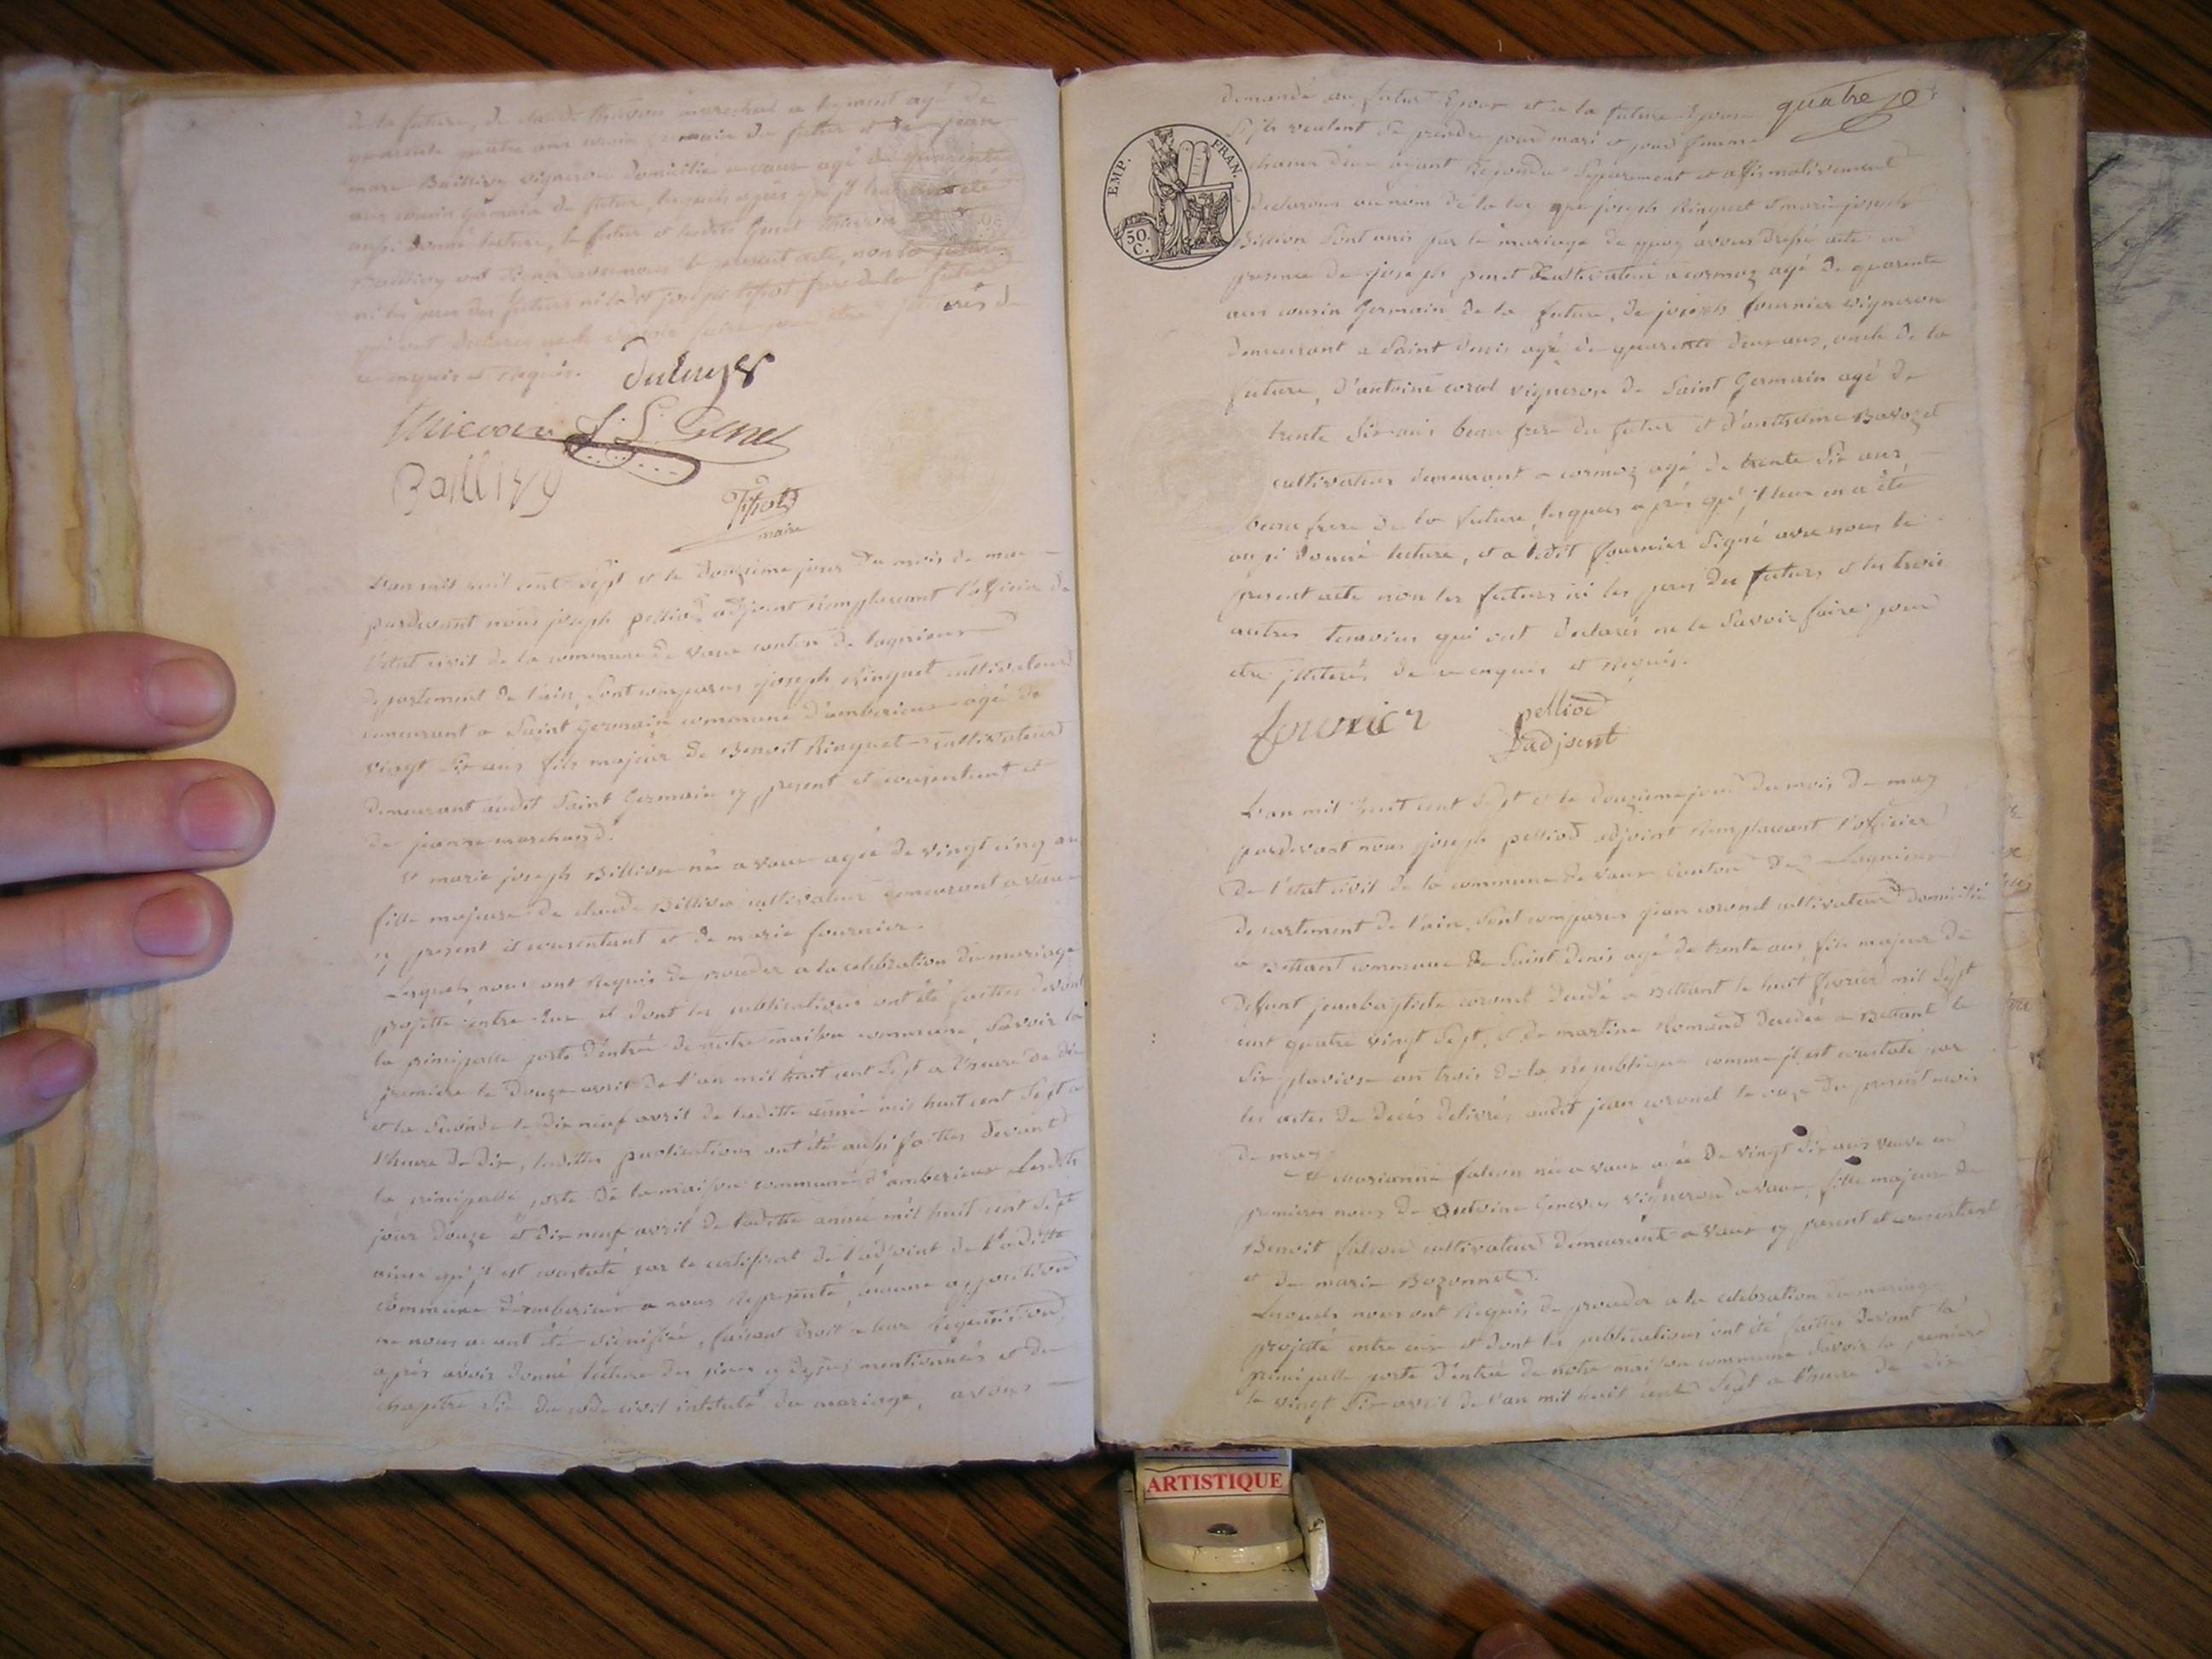 de la future, de claude thievon marechal a lament agé de
quarente quatre ans cousin germain du futur et de jean
marc Baillivy vigneron domicilié a vaux agé de quarente
ans cousin germain du futur, lesquels après qu'il leur en a été
aussi donné lecture, le futur et lesdits Genet thievon
Baillivy ont signé avec nous le present acte, non la future
ni les peres des futurs ni ledit joseph tissot frere de la future
qui ont declarés ne le savoir faire pour être illiterés de
ce enquis et Requis.
thievon J. L. Genet
Baillivy
maire
L'an mil huit cent sept et le douzieme jour du mois de mai
pardevant nous joseph pelliod adjoint Remplacant l'officier de
l'etat civil de la commune de vaux canton de lagnieux
departement de l'ain, sont comparus joseph Ringuet cultivateur
demeurant a Saint Germain commune d'amberieux agé de
vingt six ans fils majeur de Benoit Ringuet cultivateur
demeurant audit Saint Germain cy present et consentant et
de jeanne marchand.
Et marie joseph Billion née a vaux agée de vingt cinq ans
fille majeure de claude Billion cultivateur demeurant a vaux
cy present et consentant et de marie fournier.
Lesquels nous ont Requis de proceder a la celebration du mariage
projetté entre eux et dont les publications ont été faittes devant
la principalle porte d'entrée de notre maison commune, Savoir la
premiere le douze avril de l'an mil huit cent sept a l'heure de dix
et la seconde le dix neuf avril de laditte année mil huit cent sept a
l'heure de dix, lesdittes publications ont été aussi faittes devant
la principalle porte de la maison commune d'amberieux Lesdits
jour douze et dix neuf avril de laditte année mil huit cent sept
ainsi qu'il est constaté par le certificat de l'adjoint de laditte
commune d'amberieux a nous Representé, aucune opposition
ne nous ayant été signiffiée, faisant droit a leur Requisition,
après avoir donné lecture des pieces cy dessus mentionnées et du
chapitre six du code civil intitulé du mariage, avons
quatre
demandé au futur Epoux et a la future Epouse
s'ils veulent se prendre pour mari et pour femme
chacun d'eux ayant Repondu Separement et affirmativement
declarons au nom de la loy que joseph Ringuet et marie joseph
Billion sont unis par le mariage de quoy avons dressé acte en
presence de joseph peret Cultivateur a cormoz agé de quarente
ans cousin Germain de la future, de joseph fournier vigneron
demeurant a Saint denis agé de quarente deux ans, oncle de la
future, d'antoine corol vigneron de Saint Germain agé de
trente six ans beau frere du futur et d'anthelme Bavozet
cultivateur demeurant a cormoz agé de trente six ans
beau frere de la future, lesquels après qu'il leur en a été
aussi donné lecture, et a ledit fournier signé avec nous le
present acte non les futurs ni les peres des futurs et les trois
autres temoins qui ont declarés ne le savoir faire pour
etre illiterés de ce enquis et Requis.
fournier pelliod
adjoint
EMP. FRAN.
50 C.
L'an mil huit cent sept et le douzieme jour du mois de may
pardevant nous joseph pelliod adjoint Remplacant l'officier
de l'etat civil de la commune de vaux Canton de Lagnieux
departement de l'ain, sont comparus jean coronel cultivateur domicilié
a Bettant commune de Saint denis agé de trente ans, fils majeur de
defunt jean baptiste coronel decedé a Bettant le huit fevrier mil sept
cent quatre vingt sept, et de martine Romand decedée a Bettant le
six pluviose an trois de la republique comme il est constaté par
les actes de decés delivrés audit jean coronel le onze du present mois
de may.
Et marianne falcon née a vaux agée de vingt six ans veuve en
premieres noces de antoine Genevey vigneron a vaux, fille majeure de
Benoit falcon cultivateur demeurant a vaux cy present et consentant
et de marie Bozonnet.
Lesquels nous ont Requis de proceder a la celebration du mariage
projetté entre eux et dont les publications ont été faittes devant la
principalle porte d'entrée de notre maison commune Savoir la premiere
le vingt six avril de l'an mil huit cent Sept a l'heure de dix
ARTISTIQUE